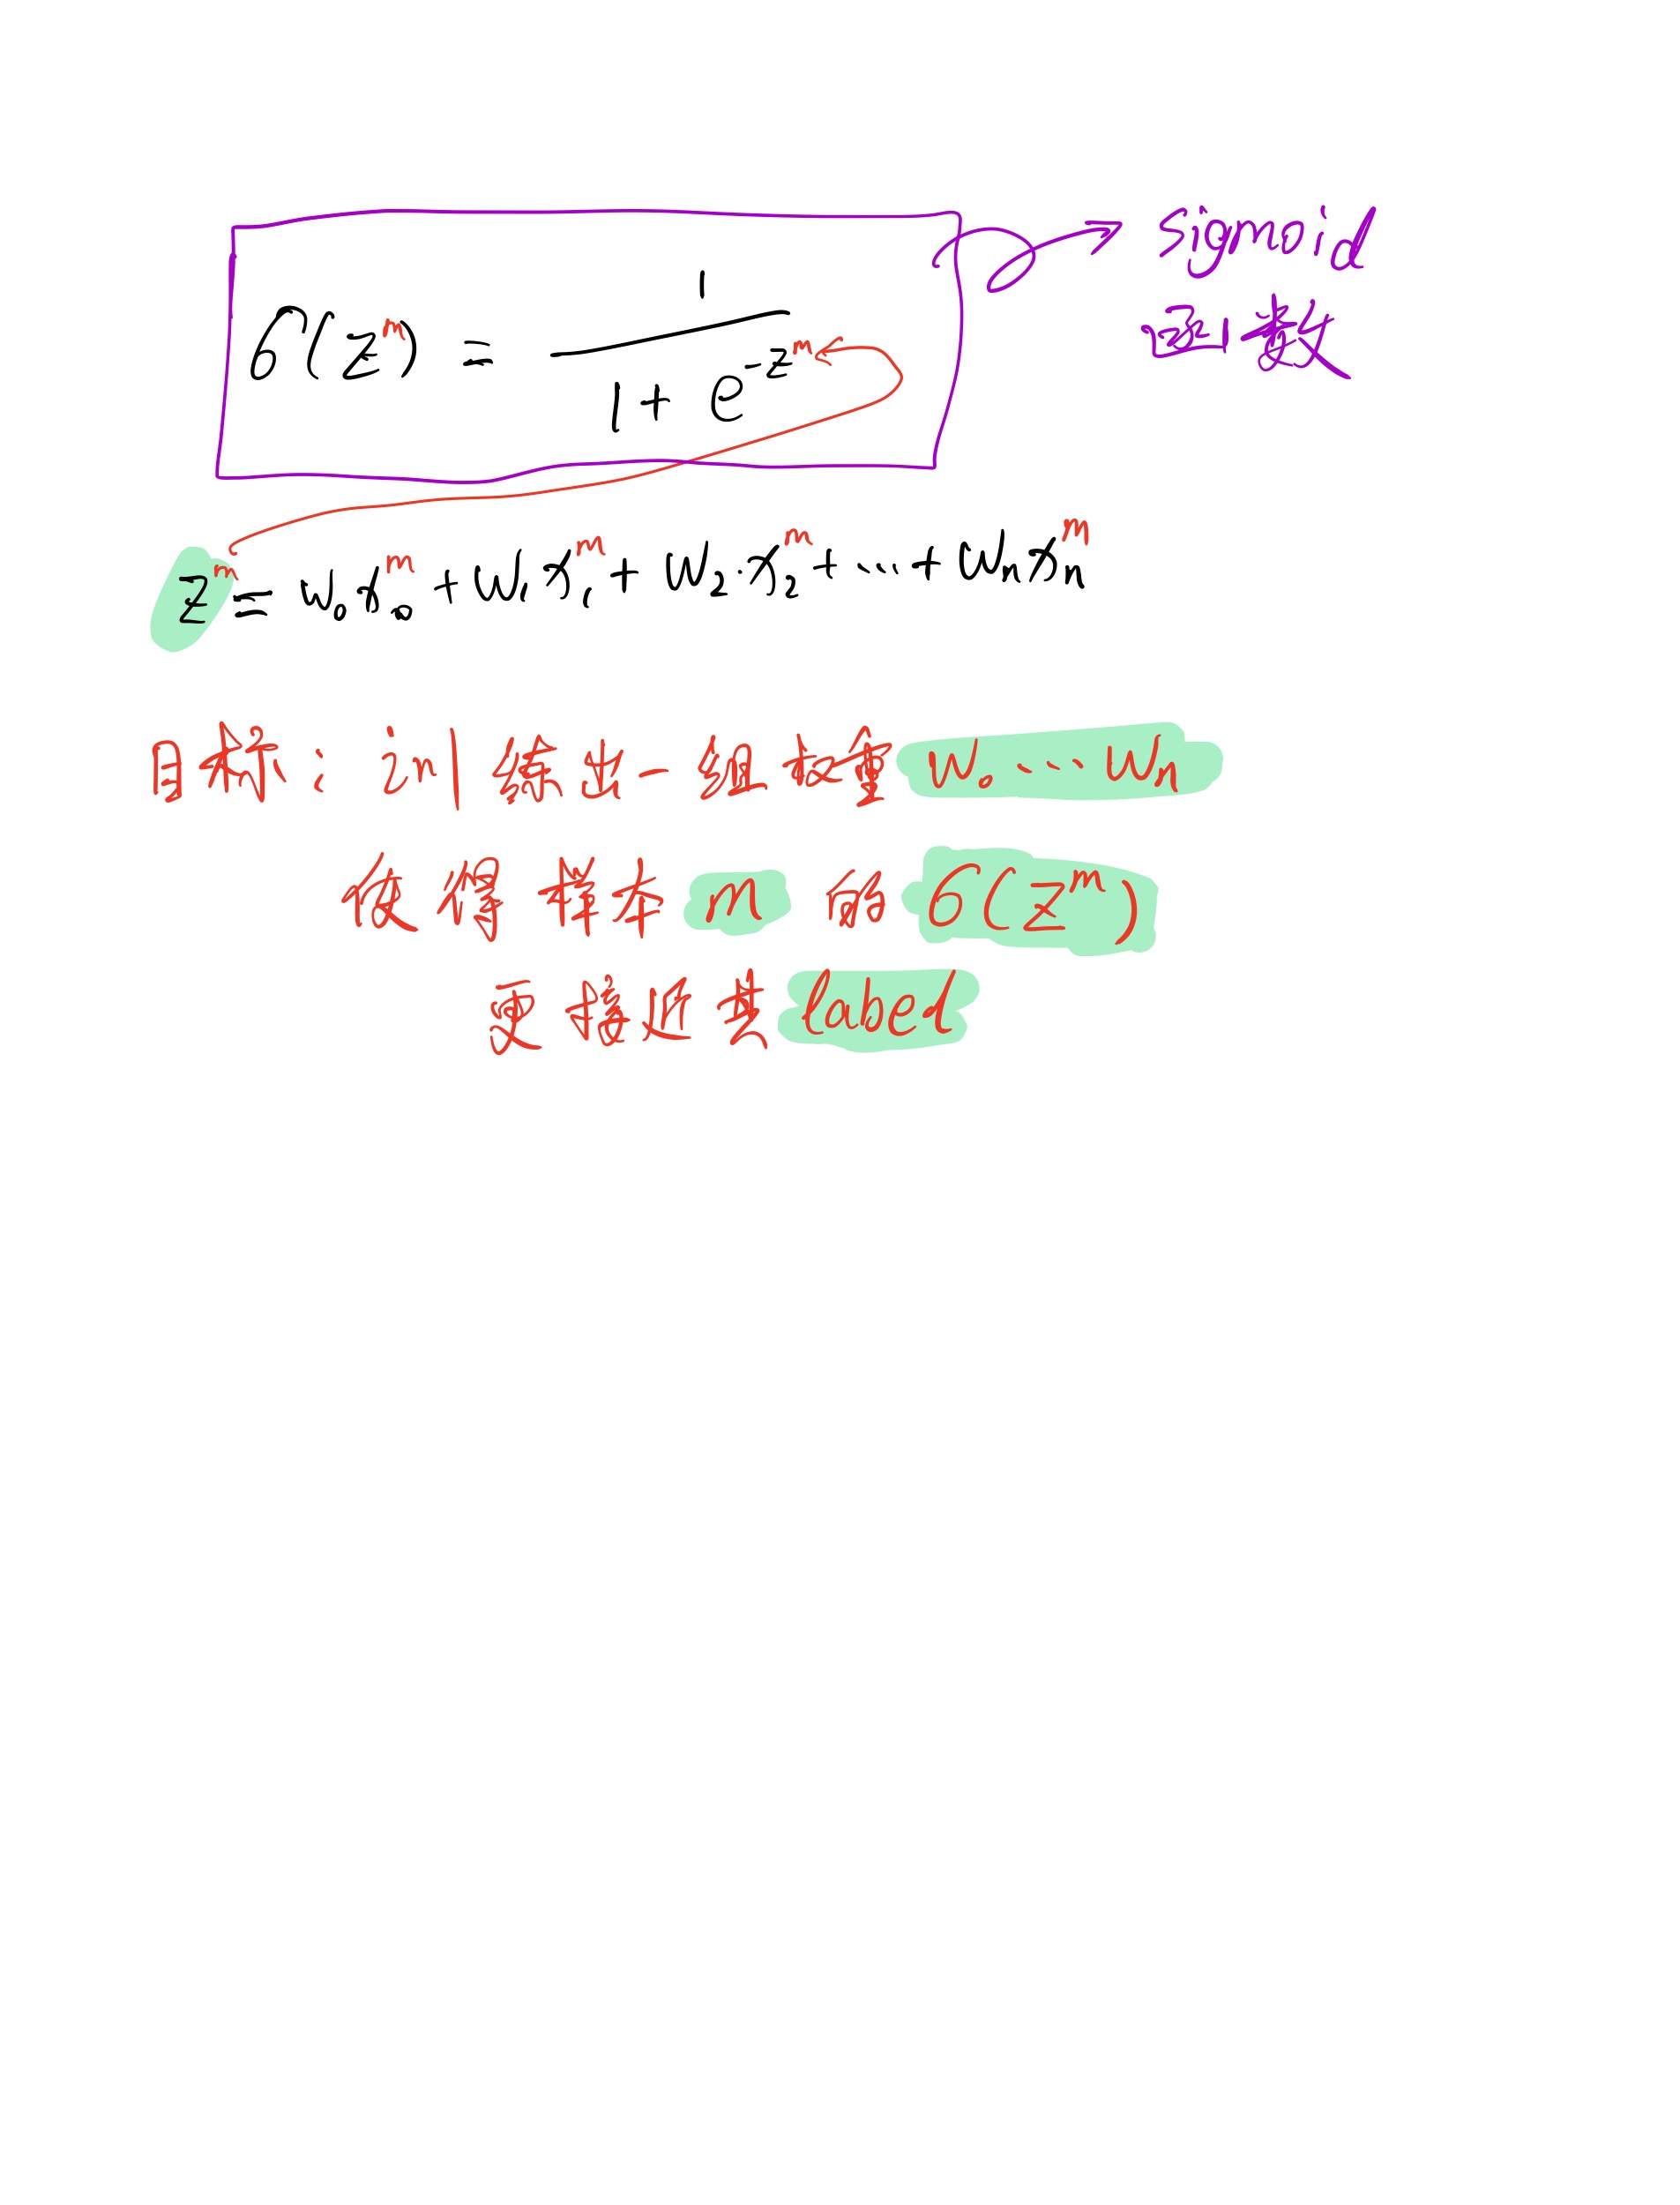 σ(z^m) = 1 / (1 + e^{-z^m})
sigmoid
函数
z^m = w₀x₀^m + w₁x₁^m + w₂·x₂^m + ... + wₙxₙ^m
目标: 训练出一组权重 w₀ ... wₙ
使得样本 m 的 σ(z^m)
更接近其 label